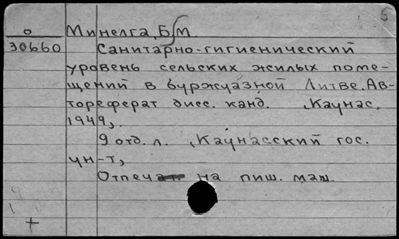 5
о Минелга, Б. М.
30660 Санитарно-гигиенический
уровень сельских жилых поме-
щений в буржуазной Литве. Ав-
тореферат дисс. канд. , Каунас,
1949,.
9 отд. л. , Каунасский гос.
ун-т,
Отпечат на пиш. маш.